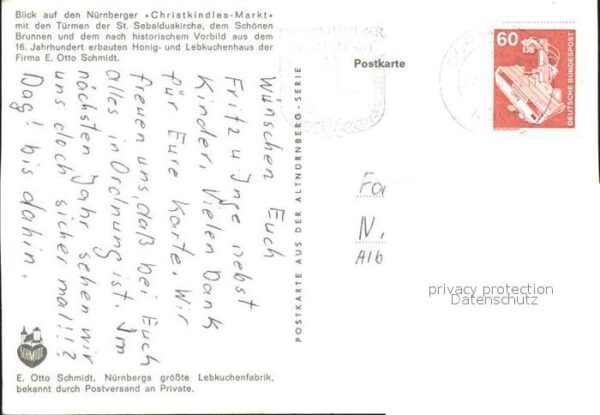 Blick auf den Nürnberger »Christkindles-Markt«
mit den Türmen der St. Sebalduskirche, dem Schönen
Brunnen und dem nach historischem Vorbild aus dem
16. Jahrhundert erbauten Honig- und Lebkuchenhaus der
Firma E. Otto Schmidt.
Wünschen Euch
Fritz u Inge nebst
Kinder. Vielen Dank
für Eure Karte. Wir
freuen uns, daß bei Euch
alles in Ordnung ist. Im
nächsten Jahr sehen wir
uns doch sicher mal!!!?
Dag! bis dahin.
SCHMIDT
E. Otto Schmidt, Nürnbergs größte Lebkuchenfabrik,
bekannt durch Postversand an Private.
POSTKARTE AUS DER ALTNÜRNBERG-SERIE
Postkarte
60
DEUTSCHE BUNDESPOST
Fa
N.
Alb
privacy protection
Datenschutz